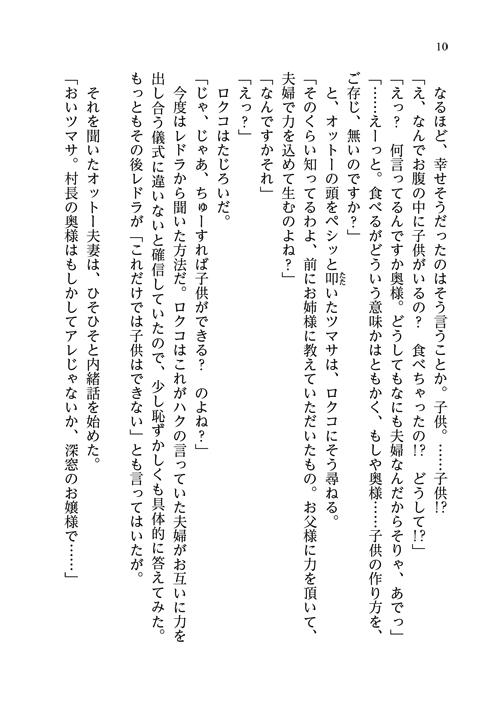 10
なるほど、幸せそうだったのはそう言うことか。子供。……子供!?
「え、なんでお腹の中に子供がいるの？　食べちゃったの!?　どうして!?」
「えっ？　何言ってるんですか奥様。どうしてもなにも夫婦なんだからそりゃ、あでっ」
「……えーっと。食べるがどういう意味かはともかく、もしや奥様……子供の作り方を、
ご存じ、無いのですか？」
と、オットーの頭をペシッと叩いたツマサは、ロクコにそう尋ねる。
「そのくらい知ってるわよ、前にお姉様に教えていただいたもの。お父様に力を頂いて、
夫婦で力を込めて生むのよね？」
「なんですかそれ」
「えっ？」
ロクコはたじろいだ。
「じゃ、じゃあ、ちゅーすれば子供ができる？　のよね？」
今度はレドラから聞いた方法だ。ロクコはこれがハクの言っていた夫婦がお互いに力を
出し合う儀式に違いないと確信していたので、少し恥ずかしくも具体的に答えてみた。
もっともその後レドラが「これだけでは子供はできない」とも言ってはいたが。
それを聞いたオットー夫妻は、ひそひそと内緒話を始めた。
「おいツマサ。村長の奥様はもしかしてアレじゃないか、深窓のお嬢様で……」